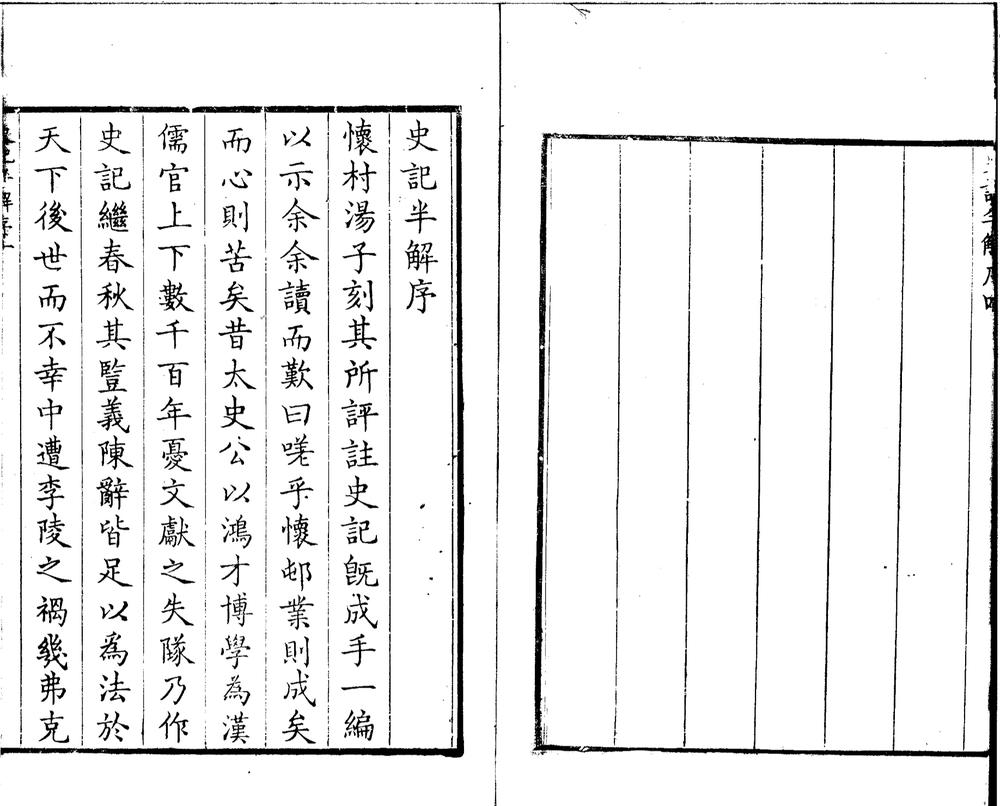 史記半解序
懷村湯子刻其所評註史記旣成手一編
以示余余讀而歎曰嗟乎懷邨業則成矣
而心則苦矣昔太史公以鴻才博學為漢
儒官上下數千百年憂文獻之失隊乃作
史記繼春秋其豎義陳辭皆足以為法於
天下後世而不幸中遭李陵之禍幾弗克
史記半解序